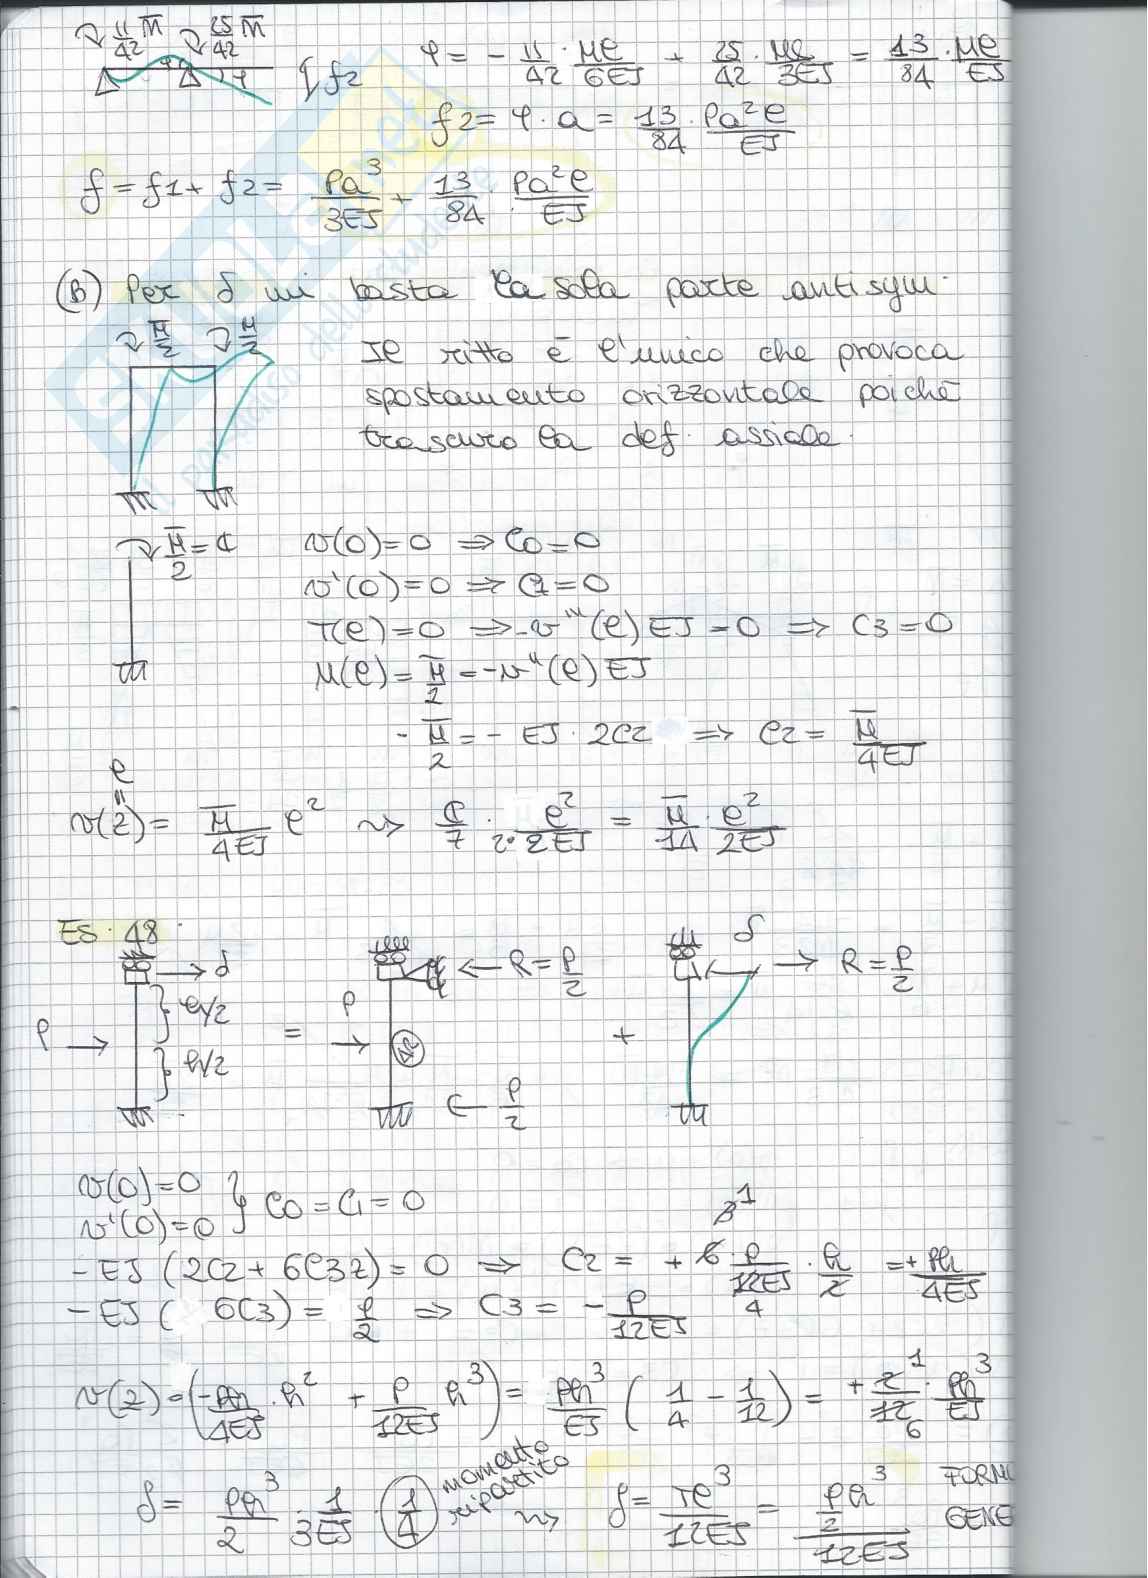 11/42 M̄   25/42 M̄
f2   φ = - 11/42 · Ml/6EJ + 25/42 · Ml/3EJ = 13/84 · Ml/EJ
f2 = φ · a = 13/84 · Pa²l/EJ
f = f1 + f2 = Pa³/3EJ + 13/84 · Pa²l/EJ
(B) Per δ mi basta la sola parte antisym.
M̄/2   M̄/2   Il ritto è l'unico che provoca
spostamento orizzontale poiché
trascuro la def. assiale.
M̄/2 = C   v(0) = 0 ⇒ C0 = 0
v'(0) = 0 ⇒ C1 = 0
T(l) = 0 ⇒ -v'''(l) EJ = 0 ⇒ C3 = 0
M(l) = M̄/2 = -v''(l) EJ
- M̄/2 = - EJ · 2C2 ⇒ C2 = M̄/4EJ
l
"
v(z) = M̄/4EJ l² ⇝ C/7 · l²/2·2EJ = M̄/14 · l²/2EJ
ES. 48
δ   R = P/2   δ   R = P/2
P   h/2   =   P   +
h/2   P/2
v(0) = 0
v'(0) = 0 } C0 = C1 = 0
- EJ (2C2 + 6C3z) = 0 ⇒ C2 = + 6 · P/12EJ · h/2 = + Ph/4EJ
- EJ ( 6C3) = P/2 ⇒ C3 = - P/12EJ
v(z) = (- Ph/4EJ · h² + P/12EJ h³) = Ph³/EJ (1/4 - 1/12) = + 2/12 · Ph³/EJ
1
6
δ = Ph³/2 · 1/3EJ · 1/4 momento ripartito ⇝ δ = Tl³/12EJ = P/2 h³/12EJ